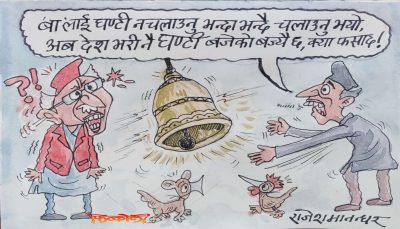 बा लाई घण्टी नचलाउनु भन्दा भन्दै चलाउनु भयो,
अब देश भरी नै घण्टी बजेको बज्यै छ, क्या फसाद!
?!
राजेश मानन्धर